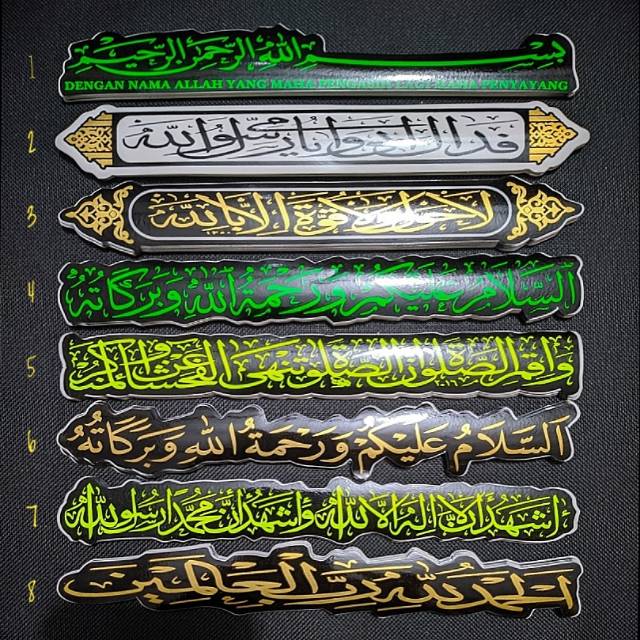 1 بِسْمِ اللهِ الرَّحْمٰنِ الرَّحِيْمِ
DENGAN NAMA ALLAH YANG MAHA PENGASIH LAGI MAHA PENYAYANG
2 فداك يا رسول الله
3 لا حول ولا قوة الا بالله
4 اَلسَّلَامُ عَلَيْكُمْ وَرَحْمَةُ اللهِ وَبَرَكَاتُهُ
5 وَاَقِمِ الصَّلٰوةَ اِنَّ الصَّلٰوةَ تَنْهٰى عَنِ الْفَحْشَاءِ وَالْمُنْكَرِ
6 اَلسَّلَامُ عَلَيْكُمْ وَرَحْمَةُ اللهِ وَبَرَكَاتُهُ
7 اشهد ان لا اله الا الله واشهد ان محمدا رسول الله
8 الحمد لله رب العالمين